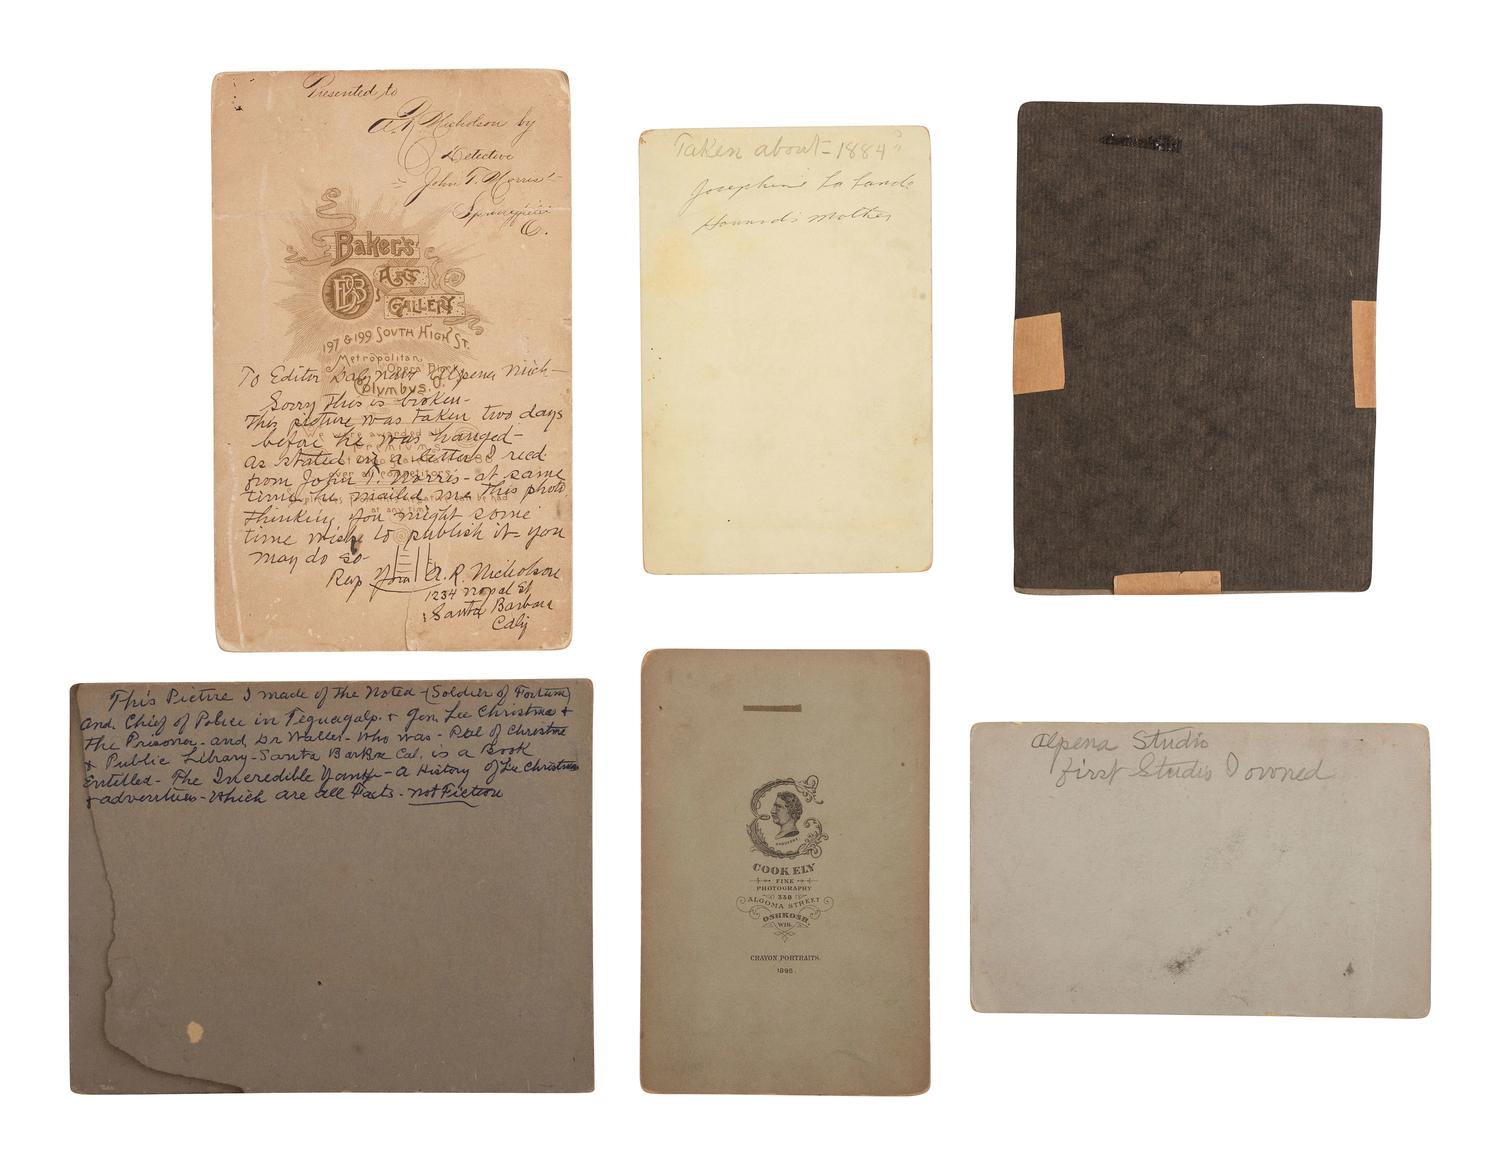 Presented to
A. R. Nicholson by
Detective
John T. Norris
Springfield
O.
Baker's
Art
Gallery
197 & 199 South High St.
Metropolitan
Opera Block
Columbus, O.
To Editor Alpena Mich-
Sorry this is broken-
This picture was taken two days
before he was hanged-
as stated in a letter I recd
from John T. Norris- at same
time he mailed me this photo
Thinking you might some
time wish to publish it- you
may do so-
A. R. Nicholson
1234 Nopal St
Santa Barbara
Calif
Taken about- 1884?
Josephine La Lande
Howard's mother
This Picture I made of the Noted- (Soldier of Fortune)
and. Chief of Police in Tegucagalp. & Gen Lee Christmas &
the Prisoner- and Dr Waller- Who was- of Christmas
& Public Library- Santa Barbara Cal, is a Book
Entitled- The Incredible Yank- a History of Lee Christmas
& adventures- Which are all Facts- not Fiction
COOK ELY
FINE
PHOTOGRAPHY
330
ALGOMA STREET
OSHKOSH,
WIS.
CRAYON PORTRAITS.
1896.
Alpena Studio
first Studio I owned